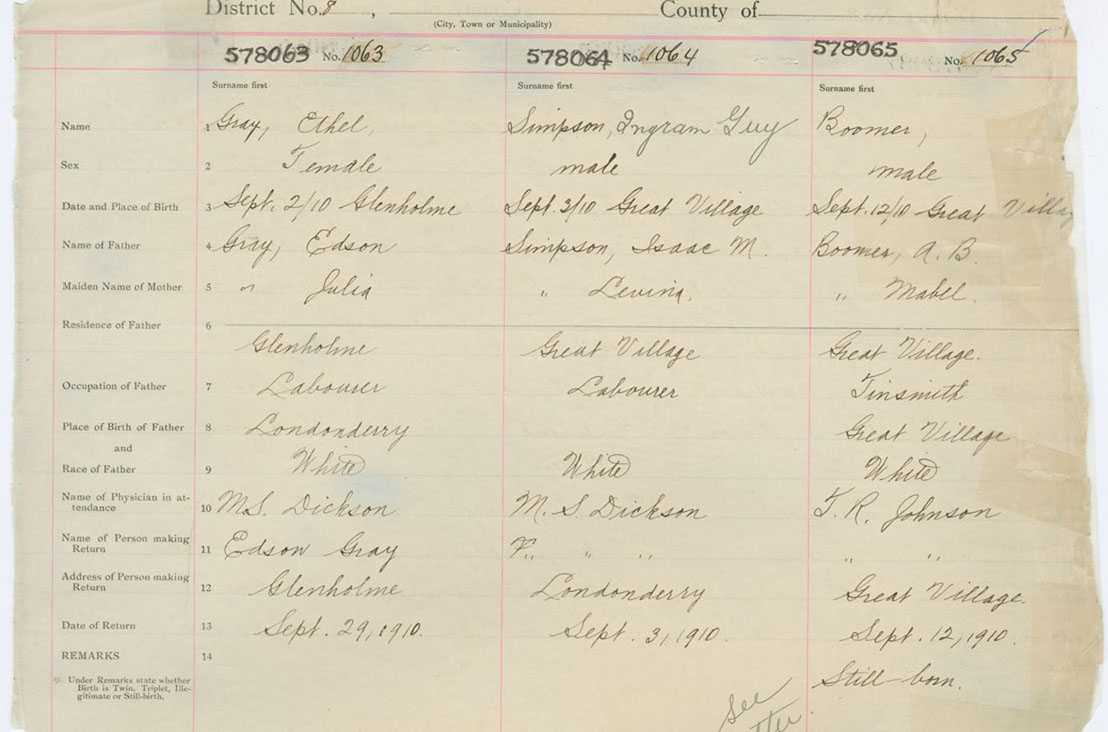 District No. 8 , County of
(City, Town or Municipality)
578063 No. 1063 578064 No. 1064 578065 No. 1065
Surname first Surname first Surname first
Name 1 Gray, Ethel, Simpson, Ingram Guy Boomer,
Sex 2 Female male male
Date and Place of Birth 3 Sept. 2/10 Glenholme Sept. 3/10 Great Village Sept. 12/10 Great Village
Name of Father 4 Gray, Edson Simpson, Isaac M. Boomer, A. B.
Maiden Name of Mother 5 " Julia " Levina. " Mabel.
Residence of Father 6
Glenholme Great Village Great Village.
Occupation of Father 7 Labourer Labourer Tinsmith
Place of Birth of Father 8 Londonderry Great Village
and
Race of Father 9 White White White
Name of Physician in at-
tendance 10 M.S. Dickson M. S. Dickson T. R. Johnson
Name of Person making
Return 11 Edson Gray " " " "
Address of Person making
Return 12 Glenholme Londonderry Great Village.
Date of Return 13 Sept. 29, 1910. Sept. 3, 1910. Sept. 12, 1910.
REMARKS 14
Under Remarks state whether
Birth is Twin, Triplet, Ille-
gitimate or Still-birth.
Still-born.
See